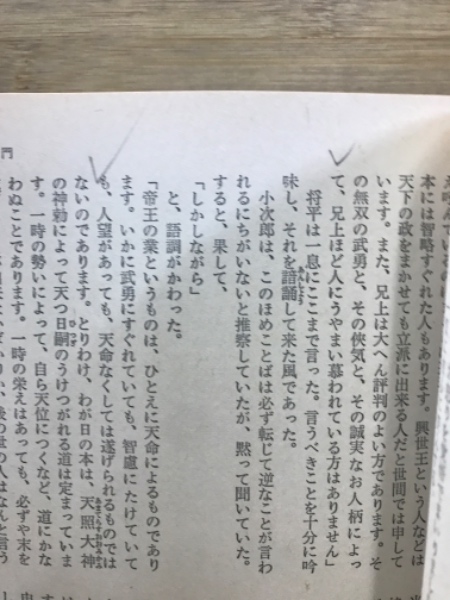 本には智略すぐれた人もあります。興世王という人などは
天下の政をまかせても立派に出来る人だと世間では申して
います。また、兄上は大へん評判のよい方であります。そ
の無双の武勇と、その俠気と、その誠実なお人柄によっ
て、兄上ほど人にうやまい慕われている方はありません」
将平は一息にここまで言った。言うべきことを十分に吟
味し、それを諳誦して来た風であった。
小次郎は、このほめことばは必ず転じて逆なことが言わ
れるにちがいないと推察していたが、黙って聞いていた。
すると、果して、
「しかしながら」
と、語調がかわった。
「帝王の業というものは、ひとえに天命によるものであり
ます。いかに武勇にすぐれていても、智慮にたけていて
も、人望があっても、天命なくしては遂げられるものでは
ないのであります。とりわけ、わが日の本は、天照大神
の神勅によって天つ日嗣のうけつがれる道は定まっていま
す。一時の勢いによって、自ら天位につくなど、道にかな
わぬことであります。一時の栄えはあっても、必ずや末を
門